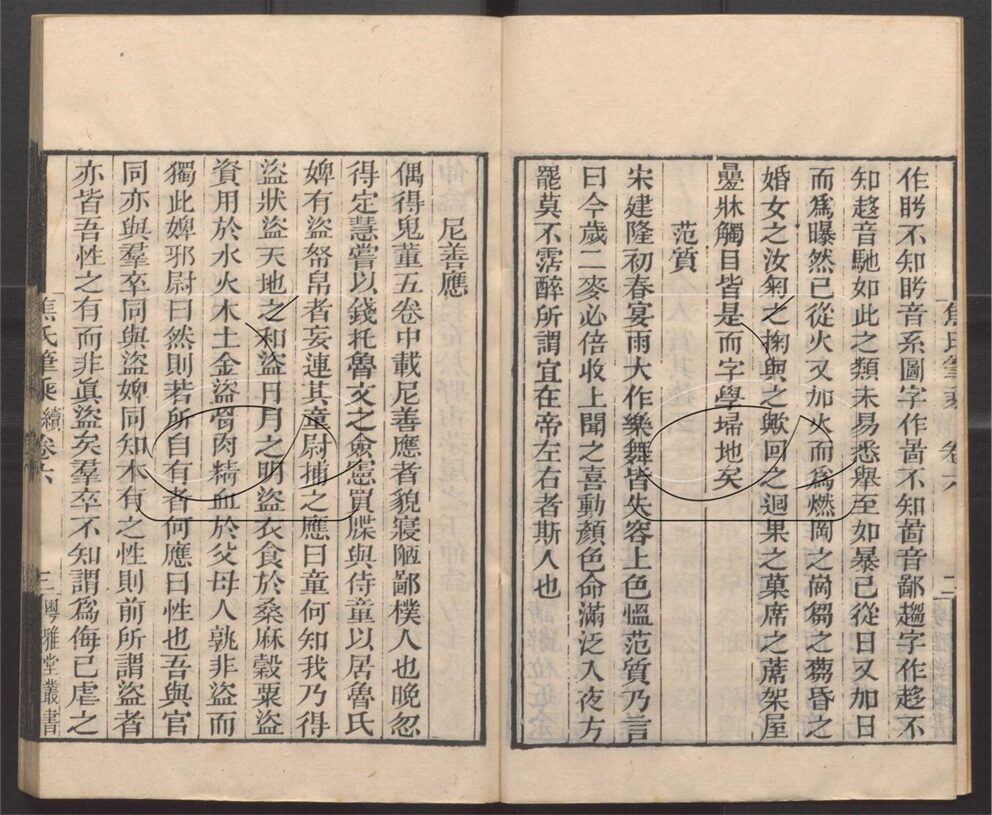 作盻不知盻音系圖字作啚不知啚音鄙趨字作趍不
知趍音馳如此之類未易悉舉至如暴已從日又加日
而爲曝然已從火又加火而爲燃岡之崗芻之蒭昏之
婚女之汝匊之掬與之歟回之迴果之菓席之蓆架屋
疊牀觸目皆是而字學埽地矣
范質
宋建隆初春宴雨大作樂舞皆失容上色慍范質乃言
曰今歲二麥必倍收上聞之喜動顏色命滿泛入夜方
罷莫不霑醉所謂宜在帝左右者斯人也
焦氏筆乘 卷六 二
尼善應
偶得鬼董五卷中載尼善應者貌寢陋鄙樸人也晚忽
得定慧嘗以錢托魯文之僉憲買牒與侍童以居魯氏
婢有盜帑帛者妄連其童尉捕之應曰童何知我乃得
盜狀盜天地之和盜日月之明盜衣食於桑麻穀粟盜
資用於水火木土金盜骨肉精血於父母人孰非盜而
獨此婢邪尉曰然則若所自有者何應曰性也吾與官
同亦與羣卒同與盜婢同知木有之性則前所謂盜者
亦皆吾性之有而非眞盜矣羣卒不知謂爲侮已虐之
焦氏筆乘 續 卷六 三 粵雅堂叢書